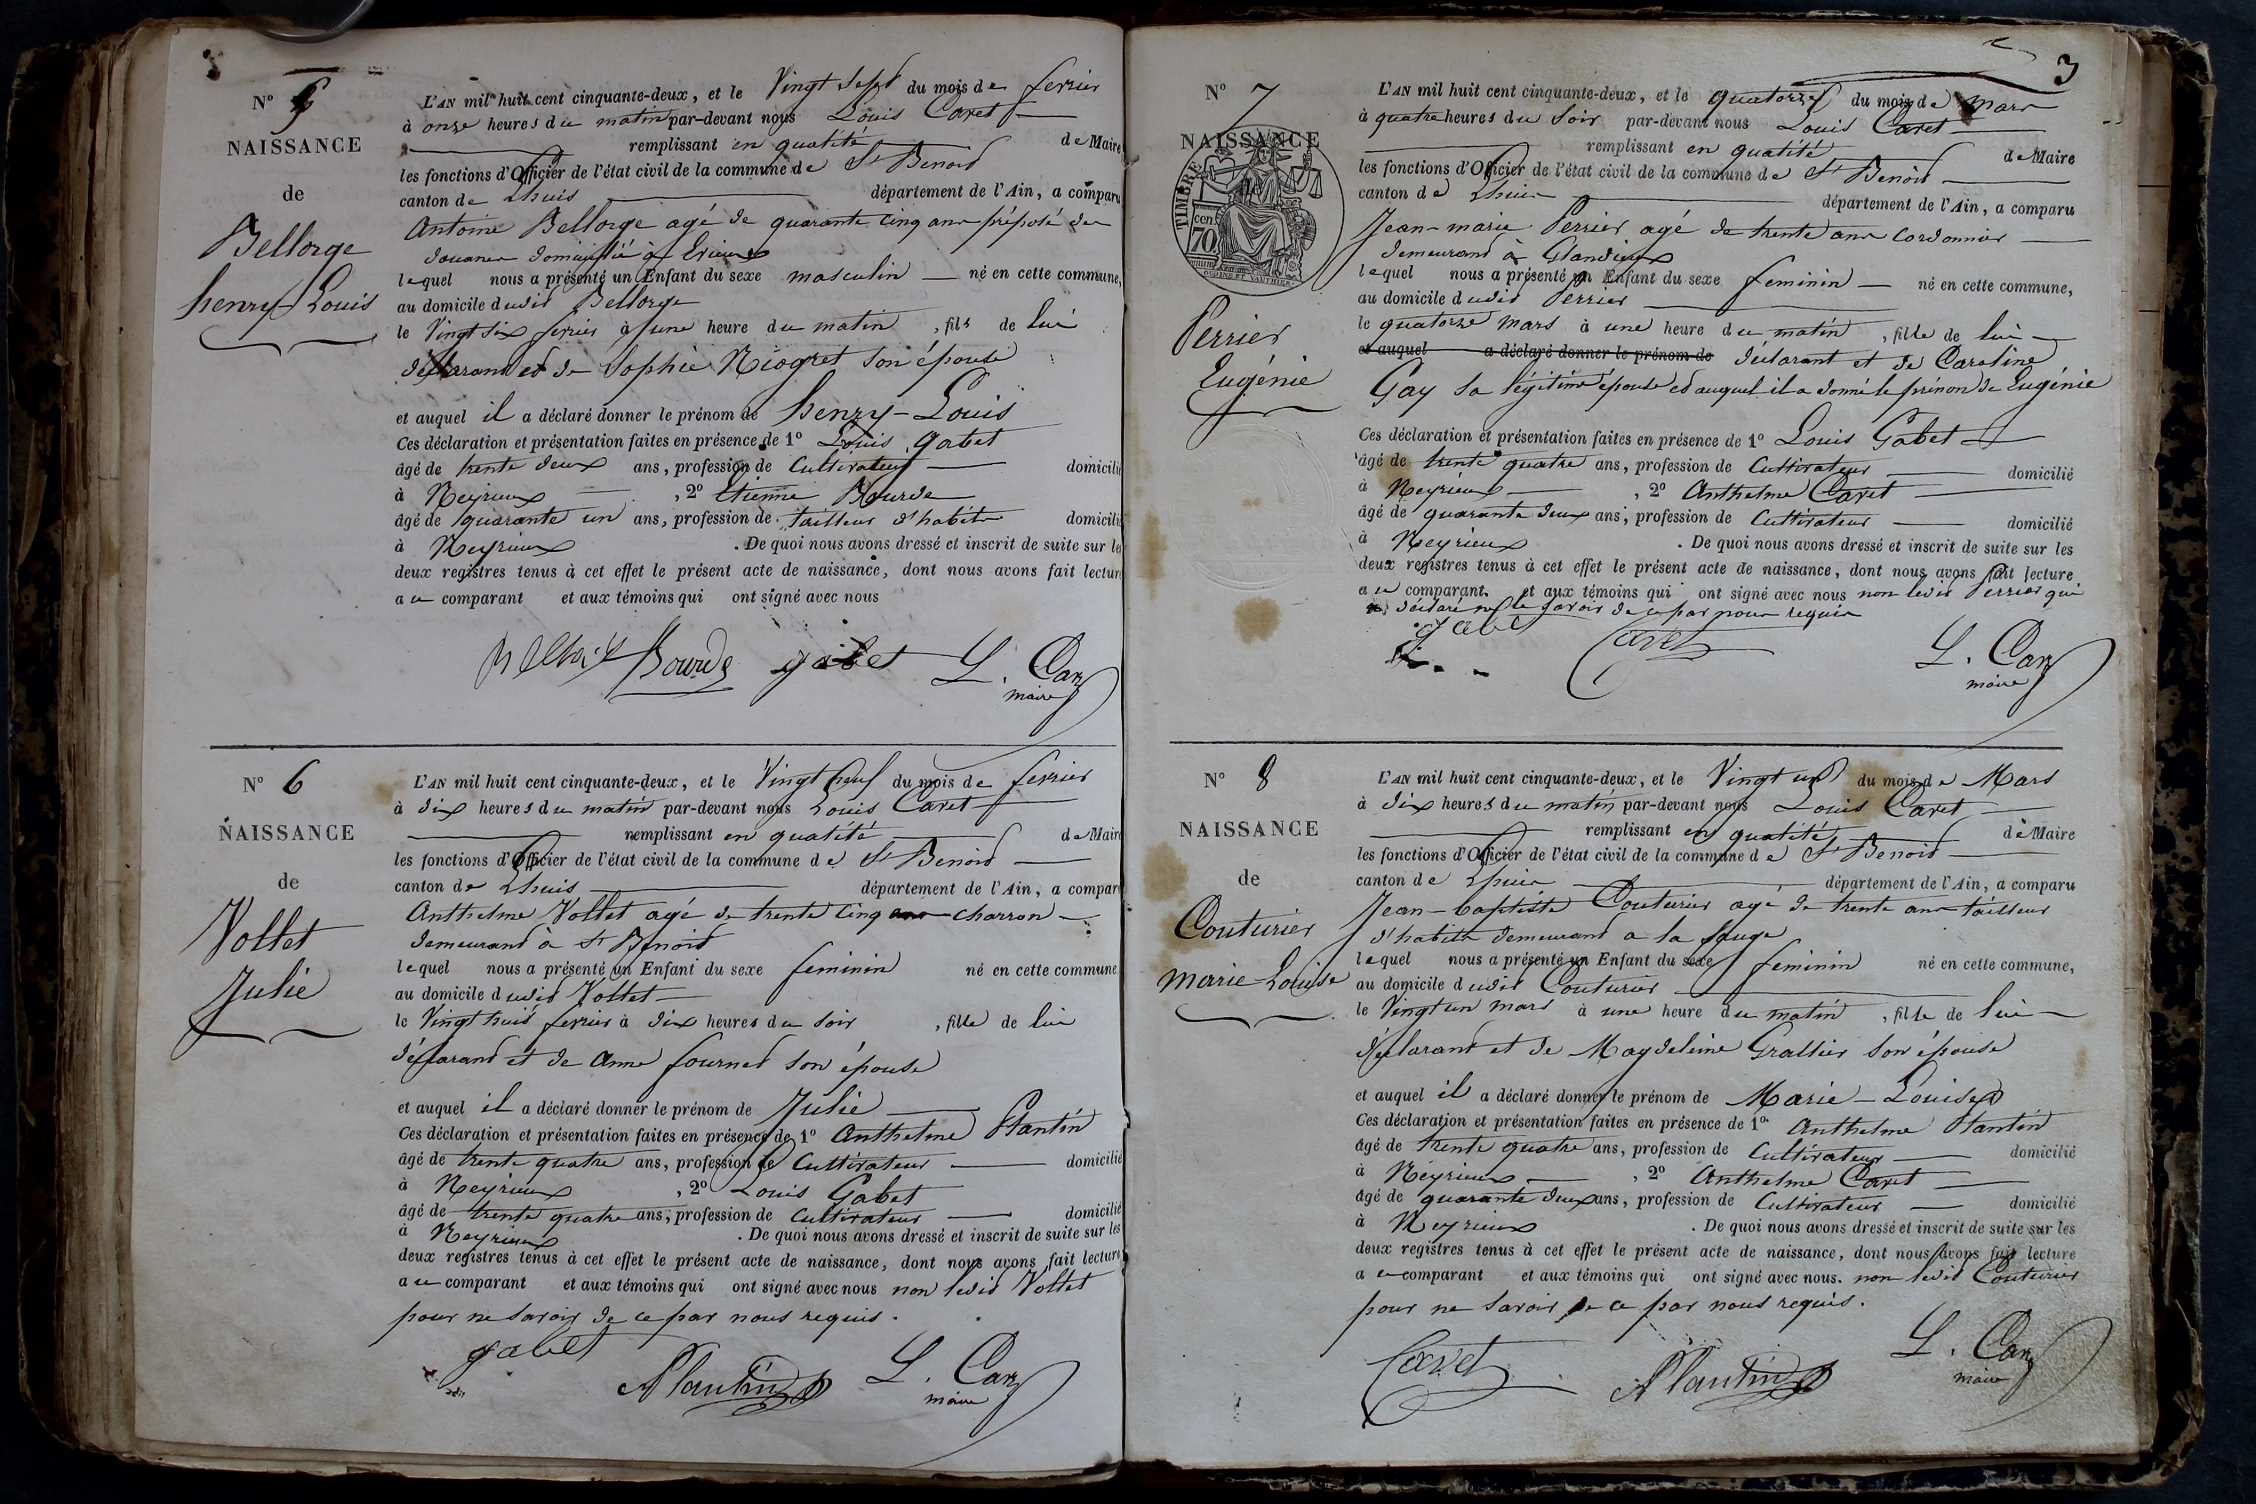 N° 5
NAISSANCE
de
Bellorge
henry-Louis
L'AN mil huit cent cinquante-deux, et le Vingt sept du mois de fevrier
à onze heures du matin par-devant nous Louis Cavet
remplissant en qualité de Maire
les fonctions d'Officier de l'état civil de la commune de St Benoid
canton de Lhuis département de l'Ain, a comparu
Antoine Bellorge agé de quarante cinq ans préposé des
douanes domicilié à Evieux
lequel nous a présenté un Enfant du sexe masculin né en cette commune,
au domicile dudid Bellorge
le Vingt six fevrier à une heure du matin, fils de lui
déclarand et de Sophie Niogret son épouse
et auquel il a déclaré donner le prénom de henry-Louis
Ces déclaration et présentation faites en présence de 1° Louis gabet
âgé de trente deux ans, profession de Cultivateur domicilié
à Neyrieux, 2° Etienne Bourde
âgé de quarante un ans, profession de tailleur d'habits domicilié
à Neyrieux. De quoi nous avons dressé et inscrit de suite sur les
deux registres tenus à cet effet le présent acte de naissance, dont nous avons fait lecture
au comparant et aux témoins qui ont signé avec nous
Bourde gabet L. Cavet
maire
N° 6
NAISSANCE
de
Vollet
Julie
L'AN mil huit cent cinquante-deux, et le Vingt neuf du mois de fevrier
à dix heures du matin par-devant nous Louis Cavet
remplissant en qualité de Maire
les fonctions d'Officier de l'état civil de la commune de St Benoid
canton de Lhuis département de l'Ain, a comparu
Anthelme Vollet agé de trente cinq ans charron
demeurand à St Benoid
lequel nous a présenté un Enfant du sexe feminin né en cette commune
au domicile dudid Vollet
le Vingt huid fevrier à dix heures du soir, fille de lui
déclarand et de Anne fourned son épouse
et auquel il a déclaré donner le prénom de Julie
Ces déclaration et présentation faites en présence de 1° Anthelme Plantin
âgé de trente quatre ans, profession de Cultivateur domicilié
à Neyrieux, 2° Louis Gabet
âgé de trente quatre ans, profession de Cultivateur domicilié
à Neyrieux. De quoi nous avons dressé et inscrit de suite sur les
deux registres tenus à cet effet le présent acte de naissance, dont nous avons fait lecture
au comparant et aux témoins qui ont signé avec nous non ledid Vollet
pour ne savoir de ce par nous requis.
gabet APlantin L. Cavet
maire
3
N° 7
NAISSANCE
de
TIMBRE
70 cen
Perrier
Eugénie
L'AN mil huit cent cinquante-deux, et le quatorze du mois de mars
à quatre heures du Soir par-devant nous Louis Cavet
remplissant en qualité de Maire
les fonctions d'Officier de l'état civil de la commune de St Benoid
canton de Lhuis département de l'Ain, a comparu
Jean-marie Perrier agé de trente ans cordonnier
demeurand à Glandieux
lequel nous a présenté un Enfant du sexe feminin né en cette commune,
au domicile dudid Perrier
le quatorze mars à une heure du matin, fille de lui
et auquel a déclaré donner le prénom de déclarant et de Caroline
Gay sa légitime épouse ed auquel il a donné le prénom de Eugénie
Ces déclaration et présentation faites en présence de 1° Louis Gabet
âgé de trente quatre ans, profession de Cultivateur domicilié
à Neyrieux, 2° Anthelme Cavet
âgé de quarante deux ans, profession de Cultivateur domicilié
à Neyrieux. De quoi nous avons dressé et inscrit de suite sur les
deux registres tenus à cet effet le présent acte de naissance, dont nous avons fait lecture
au comparant et aux témoins qui ont signé avec nous non ledid Perrier qui
a déclaré ne le savoir de ce par nous requis
gabet Cavet L. Cavet
maire
N° 8
NAISSANCE
de
Couturier
marie-Louise
L'AN mil huit cent cinquante-deux, et le Vingt un du mois de Mars
à dix heures du matin par-devant nous Louis Cavet
remplissant en qualité de Maire
les fonctions d'Officier de l'état civil de la commune de St Benoid
canton de Lhuis département de l'Ain, a comparu
Jean-baptiste Couturier agé de trente ans tailleur
d'habits demeurand a la fauge
lequel nous a présenté un Enfant du sexe feminin né en cette commune,
au domicile dudid Couturier
le Vingt un mars à une heure du matin, fille de lui
déclarand et de Magdeleine Grallier son épouse
et auquel il a déclaré donner le prénom de Marie-Louise
Ces déclaration et présentation faites en présence de 1° Anthelme Plantin
âgé de trente quatre ans, profession de Cultivateur domicilié
à Neyrieux, 2° Anthelme Cavet
âgé de quarante deux ans, profession de Cultivateur domicilié
à Neyrieux. De quoi nous avons dressé et inscrit de suite sur les
deux registres tenus à cet effet le présent acte de naissance, dont nous avons fait lecture
au comparant et aux témoins qui ont signé avec nous. non ledid Couturier
pour ne savoir de ce par nous requis.
Cavet APlantin L. Cavet
maire